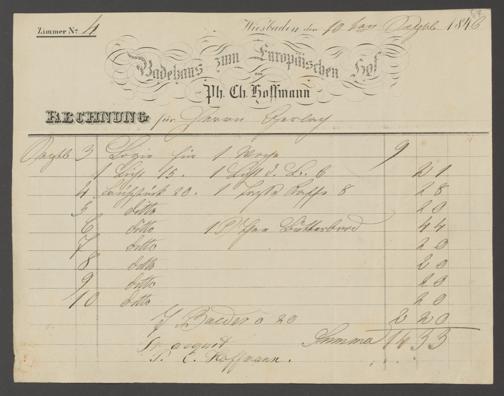 Zimmer No. 4
Wiesbaden den 10 ten Septbr 1846
Badehaus zum Europäischen Hof
von
Ph. Ch. Hoffmann
RECHNUNG für Herrn Gerlach
Septb 3 Logis für 1 Woche 9
1 15. 1 6 21
4 Frühstück 20. 1 Kaffe 8 28
5 ditto 20
6 ditto 1 Butterbrod 44
7 ditto 20
8 ditto 20
9 ditto 20
10 ditto 20
7 Baeder a 20 2 20
Summa 14 33
acquit
P. C. Hoffmann.